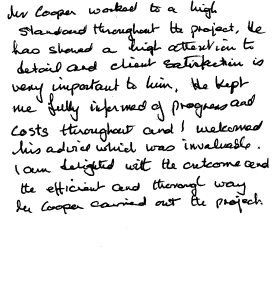 Mr Cooper worked to a high
standard throughout the project, He
has showed a high attention to
detail and client satisfaction is
very important to him, He kept
me fully informed of progress and
costs throughout and I welcomed
his advice which was invaluable.
I am delighted with the outcome and
the efficient and thorough way
Mr Cooper carried out the project.